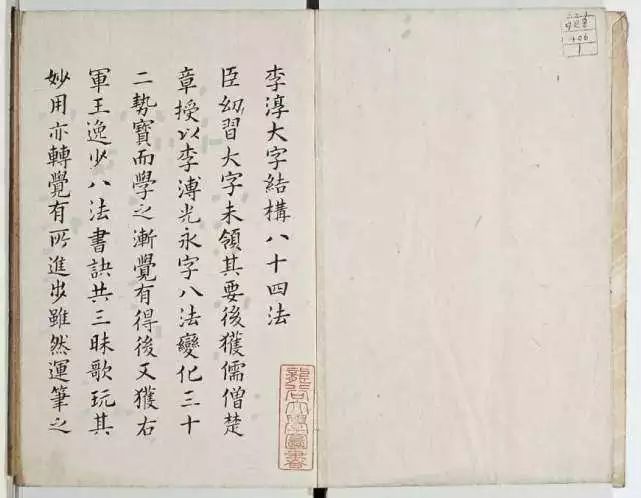 李淳大字結構八十四法
臣幼習大字未領其要後獲儒僧楚
章授以李溥光永字八法變化三十
二勢寶而學之漸覺有得後又獲右
軍王逸少八法書訣共三昧歌玩其
妙用亦轉覺有所進步雖然運筆之